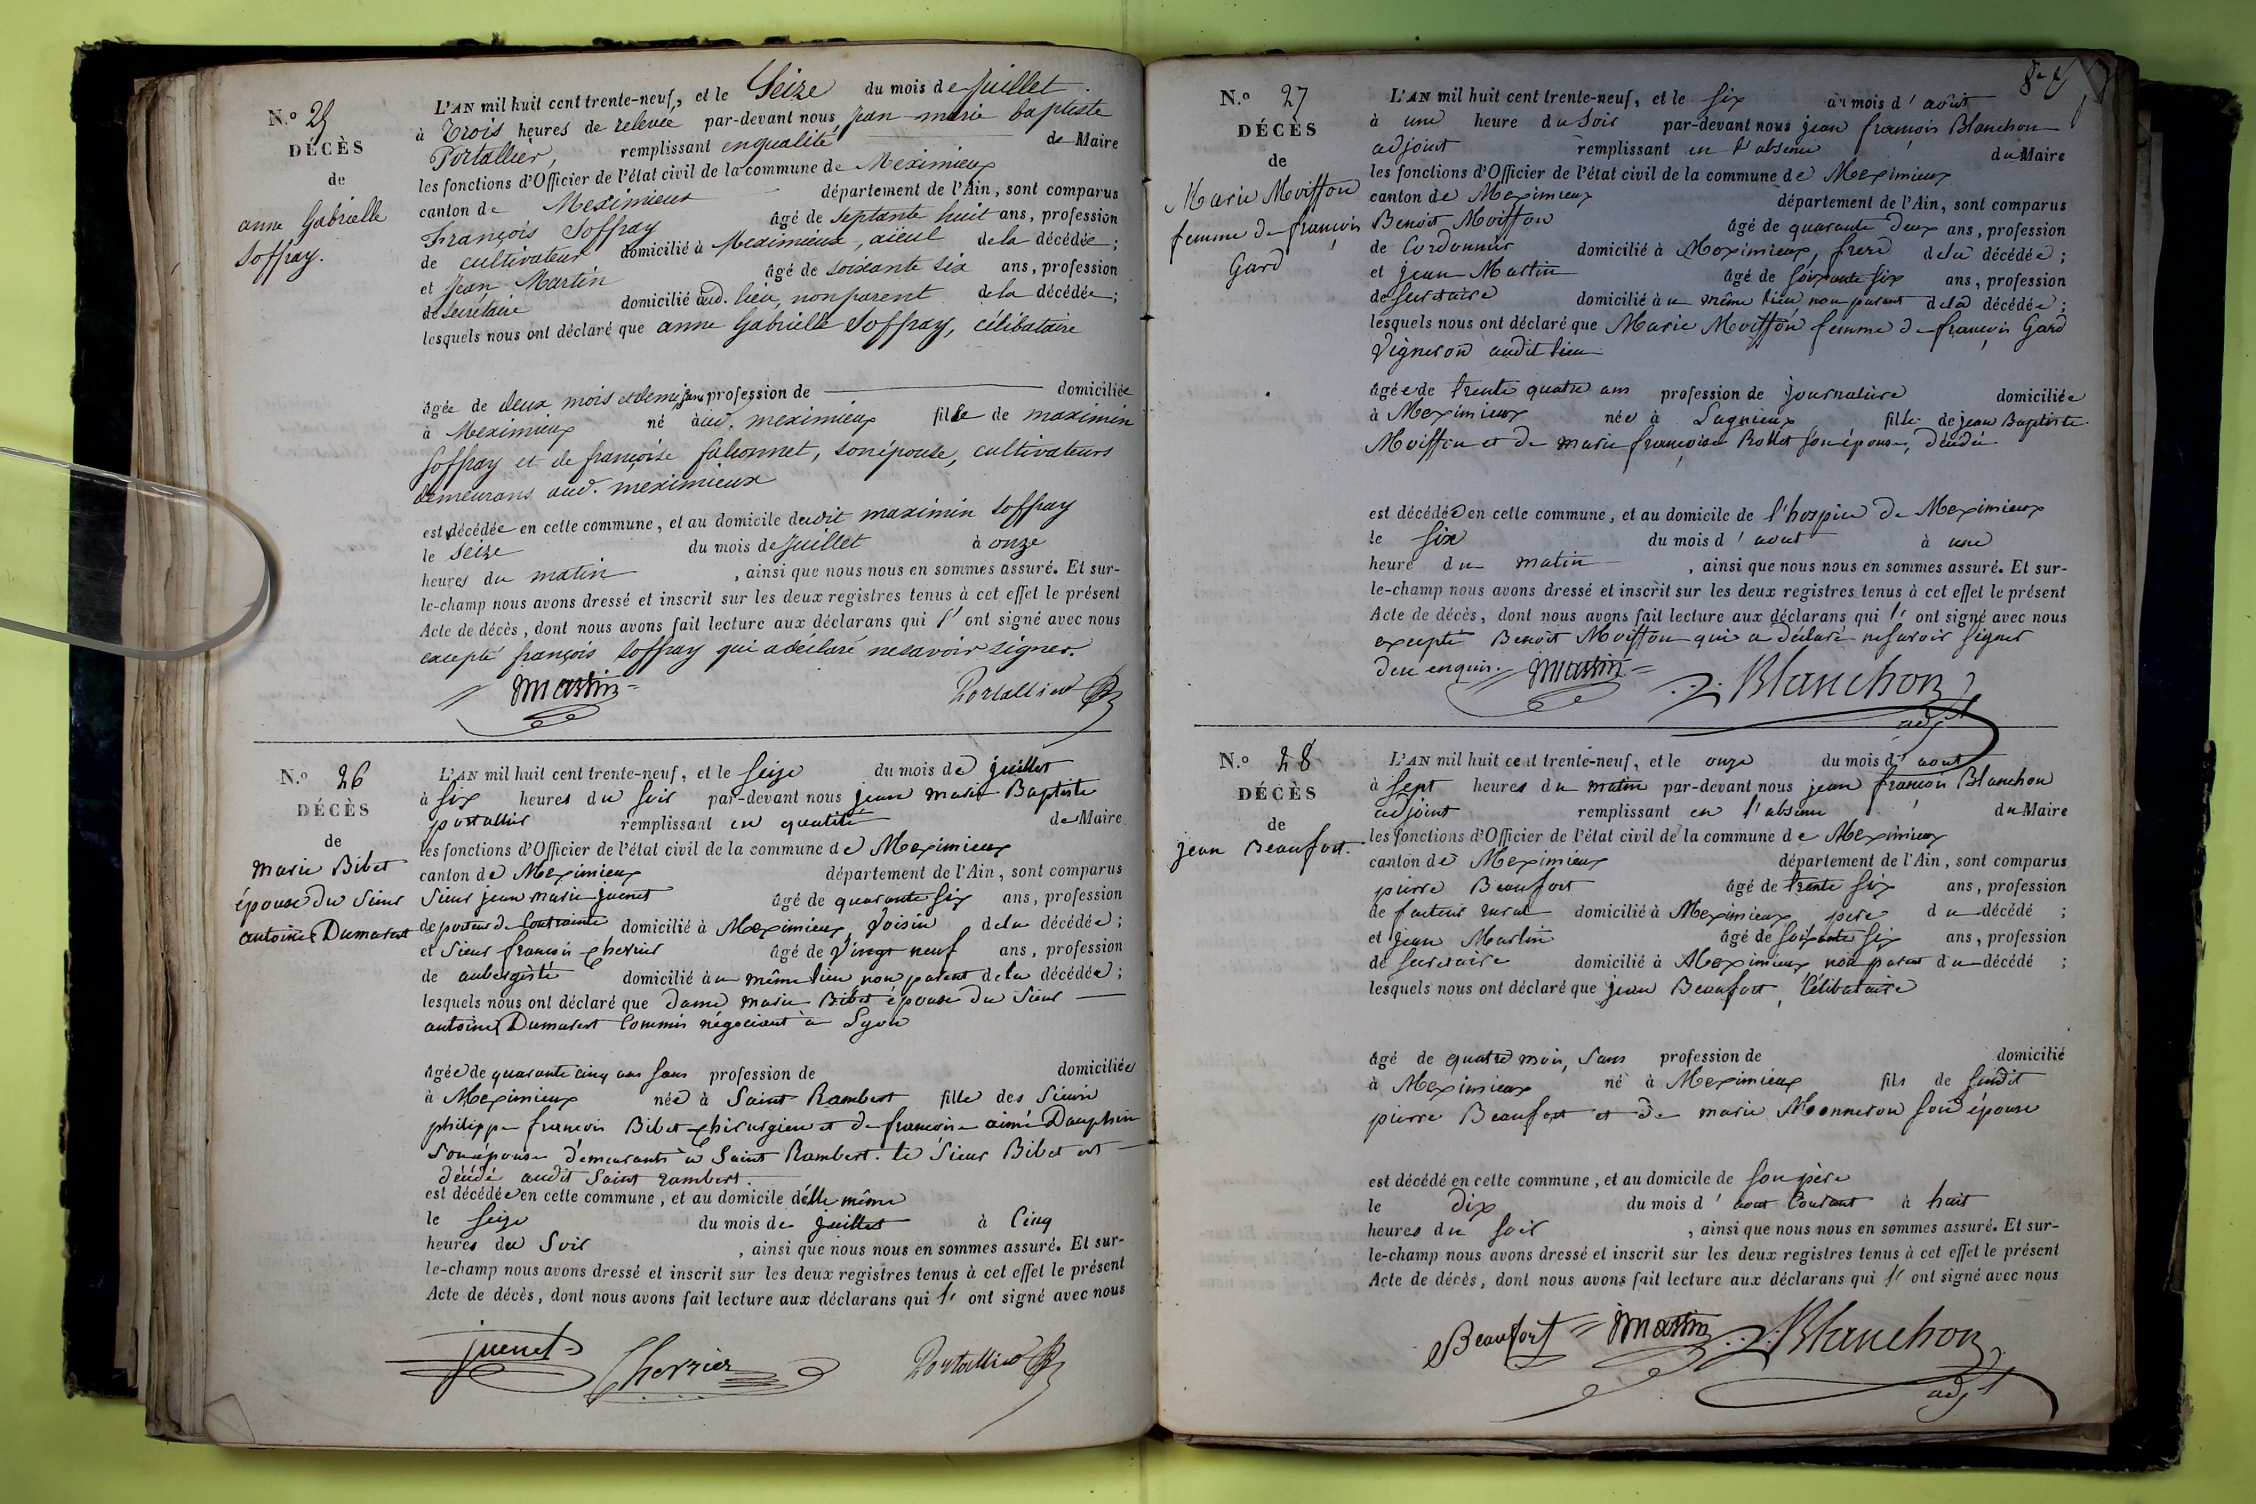 N.o 25
DÉCÈS
de
anne Gabrielle
Soffray.
L'AN mil huit cent trente-neuf, et le Seize du mois de Juillet
à Trois heures de relevée par-devant nous jean marie baptiste
Portallier, remplissant en qualité de Maire
les fonctions d'Officier de l'état civil de la commune de Meximieux
canton de Meximieux département de l'Ain, sont comparus
François Soffray âgé de septante huit ans, profession
de cultivateur domicilié à Meximieux, aïeul de la décédée ;
et jean Martin âgé de soixante six ans, profession
de secrétaire domicilié aud. lieu, non parent de la décédée ;
lesquels nous ont déclaré que anne Gabrielle Soffray, célibataire
âgée de deux mois et demi sans profession de domiciliée
à Meximieux né aud. meximieux fille de maximin
soffray et de françoise, sonépouse, cultivateurs
demeurans aud. meximieux
est décédée en cette commune, et au domicile dudit maximin soffray
le seize du mois de Juillet à onze
heures du matin, ainsi que nous nous en sommes assuré. Et sur-
le-champ nous avons dressé et inscrit sur les deux registres tenus à cet effet le présent
Acte de décès, dont nous avons fait lecture aux déclarans qui l' ont signé avec nous
excepté françois soffray qui a déclaré ne savoir signer.
martin Portallier
N.o 26
DÉCÈS
de
Marie Bibet
épouse du Sieur
antoine Dumarest
L'AN mil huit cent trente-neuf, et le seize du mois de juillet
à six heures du soir par-devant nous jean marie Baptiste
portallier remplissant en qualité de Maire
les fonctions d'Officier de l'état civil de la commune de Meximieux
canton de Meximieux département de l'Ain, sont comparus
Sieur jean marie juenet âgé de quarante six ans, profession
de porteur de Contrainte domicilié à Meximieux, Voisin de la décédée ;
et Sieur françois Cherrier âgé de Vingt neuf ans, profession
de aubergiste domicilié au même lieu non parent de la décédée ;
lesquels nous ont déclaré que dame marie Bibet épouse du Sieur
antoine Dumarest Commis négociant à Lyon
âgée de quarante cinq ans sans profession de domiciliée
à Meximieux née à Saint Rambert fille des Sieur
philippe françois Bibet chirurgien et de françoise aimé Dauphin
Son épouse demeurants à Saint Rambert. le Sieur Bibet est
décédé audit Saint rambert.
est décédée en cette commune, et au domicile d'elle même
le seize du mois de juillet à Cinq
heures du Soir, ainsi que nous nous en sommes assuré. Et sur-
le-champ nous avons dressé et inscrit sur les deux registres tenus à cet effet le présent
Acte de décès, dont nous avons fait lecture aux déclarans qui l' ont signé avec nous
juenet Cherrier Portallier
N.o 27
DÉCÈS
de
Marie Moiffon
femme de françois
Gard
L'AN mil huit cent trente-neuf, et le six du mois d' août
à une heure du Soir par-devant nous jean françois Blanchon
adjoint remplissant en l'absence du Maire
les fonctions d'Officier de l'état civil de la commune de Meximieux
canton de Meximieux département de l'Ain, sont comparus
Benoit Moiffon âgé de quarante deux ans, profession
de Cordonnier domicilié à Meximieux, frere de la décédée ;
et jean Martin âgé de soixante six ans, profession
de secretaire domicilié au même lieu non parent de la décédée ;
lesquels nous ont déclaré que Marie Moiffon femme de françois Gard
Vigneron audit lieu
âgée de trente quatre ans profession de journalière domiciliée
à Meximieux née à Lagnieux fille de jean Baptiste
Moiffon et de marie françoise Rollet son épouse, décédé
est décédée en cette commune, et au domicile de l'hospice de Meximieux
le six du mois d' aout à une
heure du matin, ainsi que nous nous en sommes assuré. Et sur-
le-champ nous avons dressé et inscrit sur les deux registres tenus à cet effet le présent
Acte de décès, dont nous avons fait lecture aux déclarans qui l' ont signé avec nous
excepté Benoit Moiffon qui a déclaré ne savoir signer
deu enquis. martin J. Blanchon
adjt
N.o 28
DÉCÈS
de
jean Beaufort.
L'AN mil huit cent trente-neuf, et le onze du mois d' aout
à sept heures du matin par-devant nous jean françois Blanchon
adjoint remplissant en l'absence du Maire
les fonctions d'Officier de l'état civil de la commune de Meximieux
canton de Meximieux département de l'Ain, sont comparus
pierre Beaufort âgé de trente six ans, profession
de facteur rural domicilié à Meximieux pere du décédé ;
et jean Martin âgé de soixante six ans, profession
de secretaire domicilié à Meximieux non parent du décédé ;
lesquels nous ont déclaré que jean Beaufort, Célibataire
âgé de quatre mois, Sans profession de domicilié
à Meximieux né à Meximieux fils de susdit
pierre Beaufort et de marie Monneron son épouse
est décédé en cette commune, et au domicile de son père
le dix du mois d' aout Courant à huit
heures du soir, ainsi que nous nous en sommes assuré. Et sur-
le-champ nous avons dressé et inscrit sur les deux registres tenus à cet effet le présent
Acte de décès, dont nous avons fait lecture aux déclarans qui l' ont signé avec nous
Beaufort martin J. Blanchon
adjt